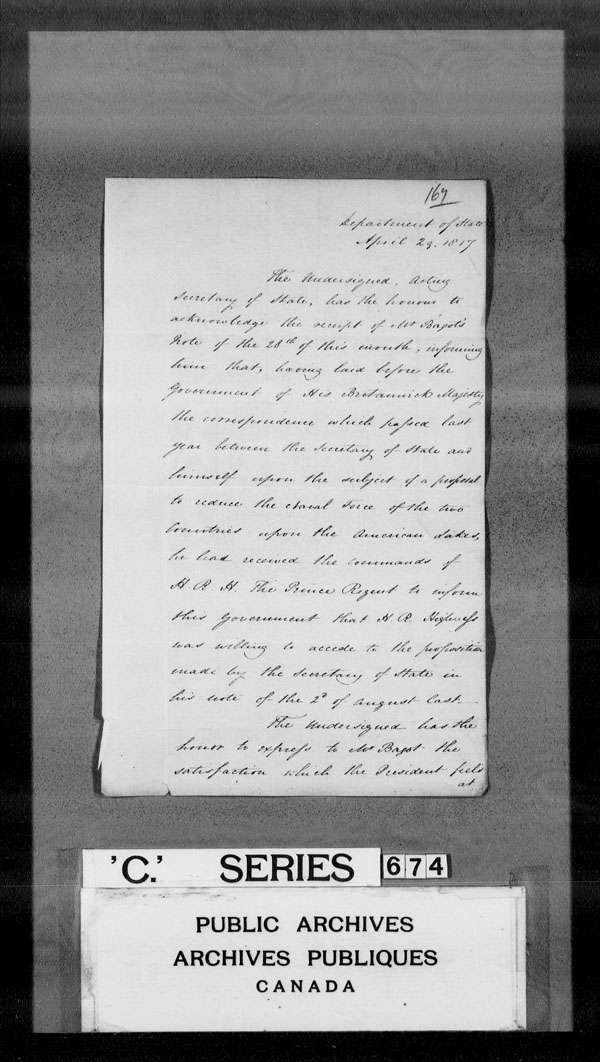 167
Department of State
April 29. 1817
The Undersigned, Acting
Secretary of State, has the honour to
acknowledge the receipt of Mr Bagot's
Note of the 28th of this month, informing
him that, having laid before the
Government of His Britannick Majesty
the correspondence which passed last
year between the Secretary of State and
himself upon the subject of a proposal
to reduce the Naval Force of the two
Countries upon the American Lakes,
he had received the commands of
H. R. H. The Prince Regent to inform
this Government that H. R. Highness
was willing to accede to the proposition
made by the Secretary of State in
his note of the 2d of August last.
The Undersigned has the
honor to express to Mr Bagot the
satisfaction which the President feels
at
'C.' SERIES 674
PUBLIC ARCHIVES
ARCHIVES PUBLIQUES
CANADA